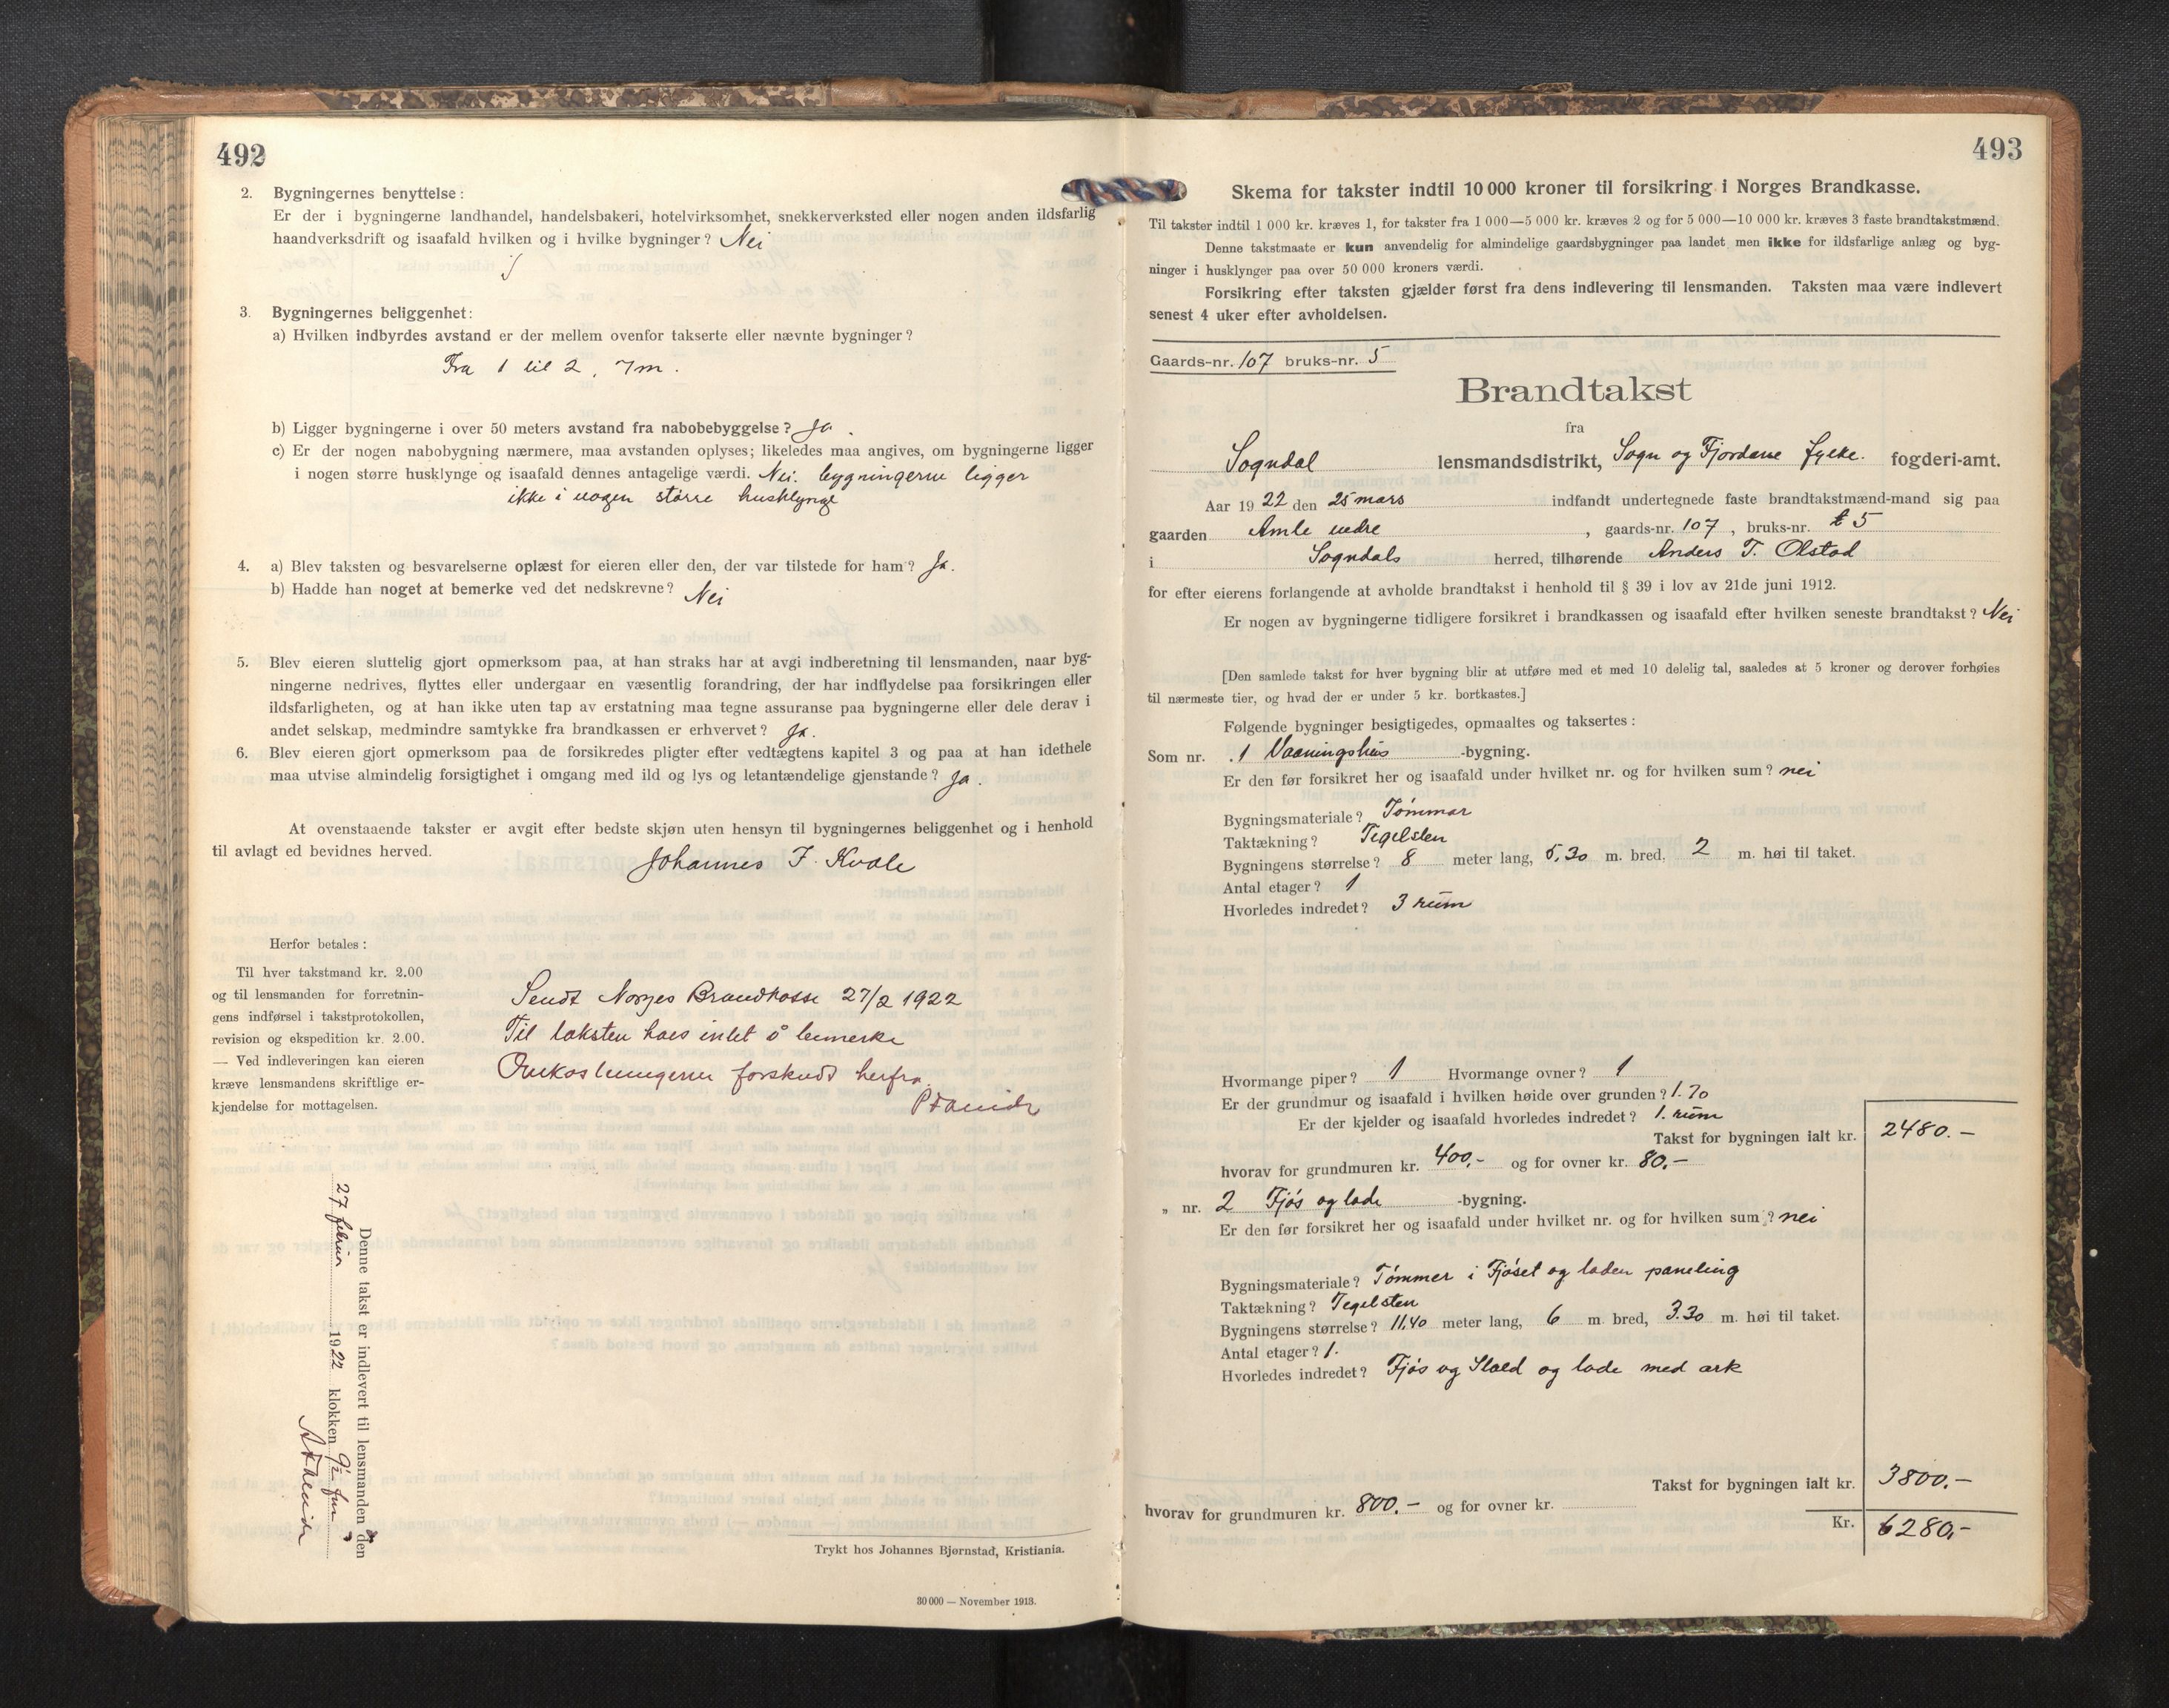 492
2. Bygningernes benyttelse:
Er der i bygningerne landhandel, handelsbakeri, hotelvirksomhet, snekkerverksted eller nogen anden ildsfarlig
haandverksdrift og isaafald hvilken og i hvilke bygninger? Nei
3. Bygningernes beliggenhet:
a) Hvilken indbyrdes avstand er der mellem ovenfor takserte eller nævnte bygninger?
Fra 1 til 2, 7m.
b) Ligger bygningerne i over 50 meters avstand fra nabobebyggelse? Ja.
c) Er der nogen nabobygning nærmere, maa avstanden oplyses; likeledes maa angives, om bygningerne ligger
i nogen større husklynge og isaafald dennes antagelige værdi. Nei. bygningerne ligger
ikke i nogen större husklynge
4. a) Blev taksten og besvarelserne oplæst for eieren eller den, der var tilstede for ham? Ja.
b) Hadde han noget at bemerke ved det nedskrevne? Nei
5. Blev eieren sluttelig gjort opmerksom paa, at han straks har at avgi indberetning til lensmanden, naar byg-
ningerne nedrives, flyttes eller undergaar en væsentlig forandring, der har indflydelse paa forsikringen eller
ildsfarligheten, og at han ikke uten tap av erstatning maa tegne assuranse paa bygningerne eller dele derav i
andet selskap, medmindre samtykke fra brandkassen er erhvervet? Ja.
6. Blev eieren gjort opmerksom paa de forsikredes pligter efter vedtægtens kapitel 3 og paa at han idethele
maa utvise almindelig forsigtighet i omgang med ild og lys og letantændelige gjenstande? Ja.
At ovenstaaende takster er avgit efter bedste skjøn uten hensyn til bygningernes beliggenhet og i henhold
til avlagt ed bevidnes herved.
Johannes J. Kvale
Herfor betales:
Til hver takstmand kr. 2.00
og til lensmanden for forretnin-
gens indførsel i takstprotokollen,
revision og ekspedition kr. 2.00.
— Ved indleveringen kan eieren
kræve lensmandens skriftlige er-
kjendelse for mottagelsen.
Sendt Norges Brandkasse 27/2 1922
Til taksten haes intet å bemerke
Omkostningerne forskudt herfra.
Denne takst er indlevert til lensmanden den
27 februar 1922 klokken
Trykt hos Johannes Bjørnstad, Kristiania.
30 000 — November 1913.
493
Skema for takster indtil 10 000 kroner til forsikring i Norges Brandkasse.
Til takster indtil 1 000 kr. kræves 1, for takster fra 1 000—5 000 kr. kræves 2 og for 5 000—10 000 kr. kræves 3 faste brandtakstmænd.
Denne takstmaate er kun anvendelig for almindelige gaardsbygninger paa landet men ikke for ildsfarlige anlæg og byg-
ninger i husklynger paa over 50 000 kroners værdi.
Forsikring efter taksten gjælder først fra dens indlevering til lensmanden. Taksten maa være indlevert
senest 4 uker efter avholdelsen.
Gaards-nr. 107 bruks-nr. 5
Brandtakst
fra
Sogndal lensmandsdistrikt, Sogn og Fjordane fylke. fogderi-amt.
Aar 1922 den 25 mars indfandt undertegnede faste brandtakstmænd-mand sig paa
gaarden Amle nedre, gaards-nr. 107, bruks-nr. 5
i Sogndals herred, tilhørende Anders T. Olstad
for efter eierens forlangende at avholde brandtakst i henhold til § 39 i lov av 21de juni 1912.
Er nogen av bygningerne tidligere forsikret i brandkassen og isaafald efter hvilken seneste brandtakst? Nei
[Den samlede takst for hver bygning blir at utføre med et med 10 delelig tal, saaledes at 5 kroner og derover forhøies
til nærmeste tier, og hvad der er under 5 kr. bortkastes.]
Følgende bygninger besigtigedes, opmaaltes og taksertes:
Som nr. 1 Vaaningshus -bygning.
Er den før forsikret her og isaafald under hvilket nr. og for hvilken sum? nei
Bygningsmateriale? Tömmer
Taktækning? Tegelsten
Bygningens størrelse? 8 meter lang, 5,30 m. bred, 2 m. høi til taket.
Antal etager? 1
Hvorledes indredet? 3 rum
Hvormange piper? 1 Hvormange ovner? 1
Er der grundmur og isaafald i hvilken høide over grunden? 1.70
Er der kjelder og isaafald hvorledes indredet? 1. rum
Takst for bygningen ialt kr. 2480.-
hvorav for grundmuren kr. 400,- og for ovner kr. 80.-
„ nr. 2 Fjös og lade -bygning.
Er den før forsikret her og isaafald under hvilket nr. og for hvilken sum? nei
Bygningsmateriale? Tömmer i Fjöset og laden paneling
Taktækning? Tegelsten
Bygningens størrelse? 11,40 meter lang, 6 m bred, 3.30 m. høi til taket.
Antal etager? 1.
Hvorledes indredet? Fjös og Stald og lade med ark
Takst for bygningen ialt kr. 3800.-
hvorav for grundmuren kr. 800.- og for ovner kr.
Kr. 6280,-